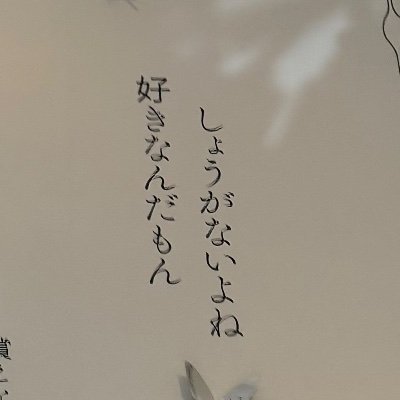 しょうがないよね
好きなんだもん